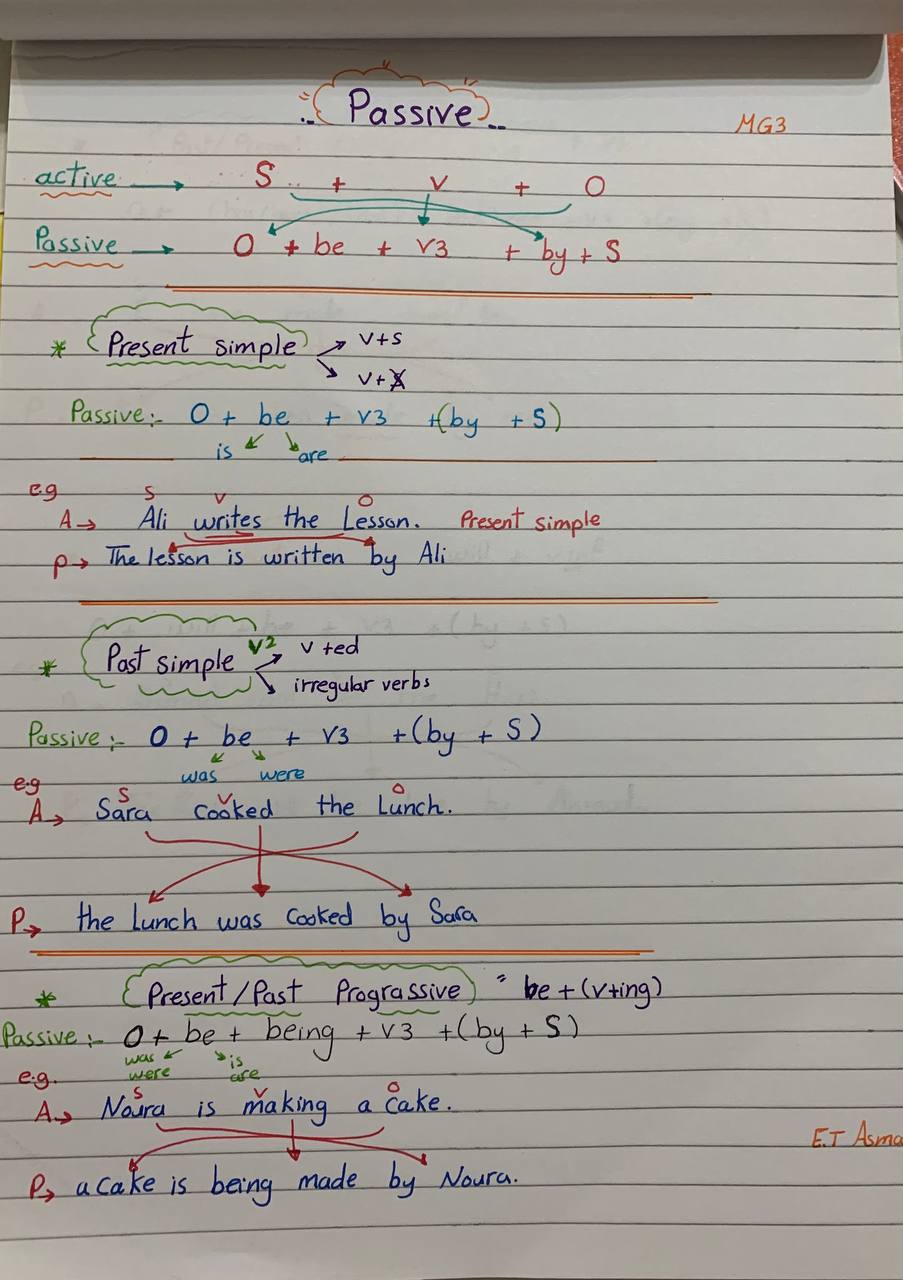 Passive
MG3
active → S + V + O
Passive → O + be + V3 + by + S
* Present simple → V+S
→ V+X
Passive:- O + be + V3 +(by + S)
is are
e.g
S V O
A→ Ali writes the Lesson. Present simple
P→ The lesson is written by Ali
* Past simple V2 → V+ed
→ irregular verbs
Passive:- O + be + V3 +(by + S)
was were
e.g
S V O
A→ Sara cooked the Lunch.
P→ the Lunch was cooked by Sara
* Present/Past Prograssive = be+(v+ing)
Passive:- O + be + being + V3 +(by + S)
was is
were are
e.g.
S V O
A→ Noura is making a cake.
E.T Asma
P→ a cake is being made by Noura.